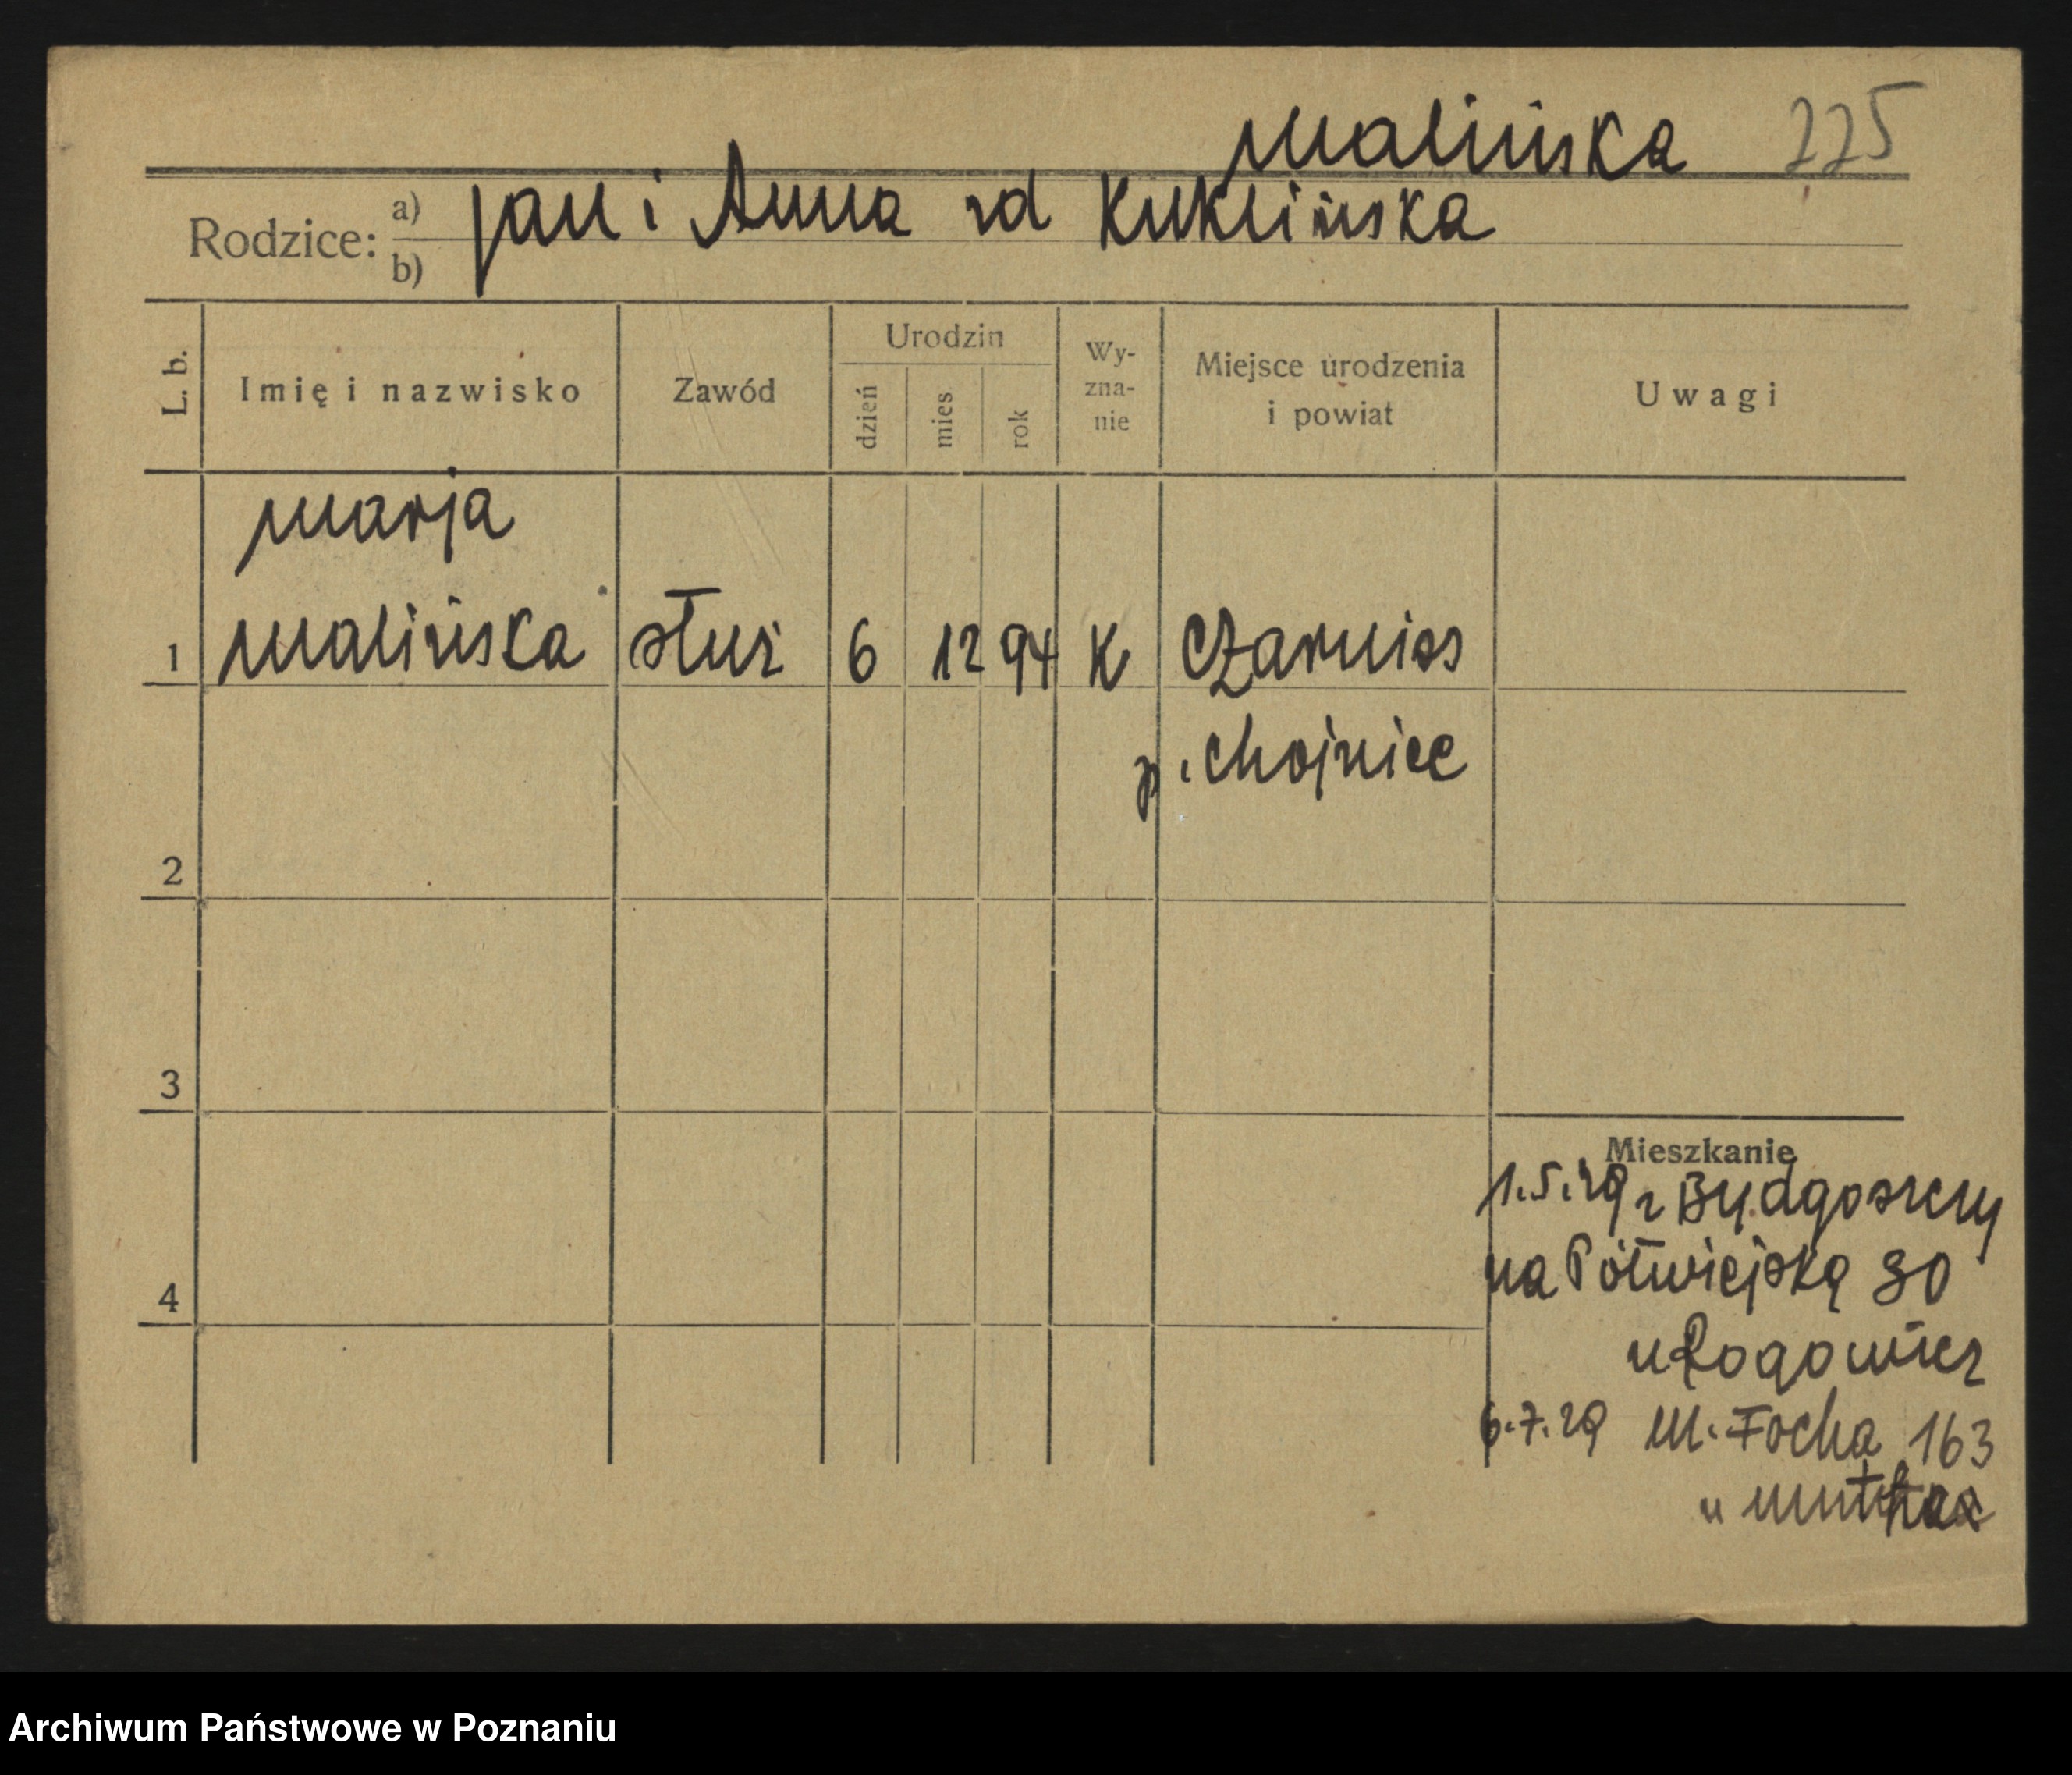 Malińska 225
Rodzice: a) Jan i Anna zd Kuklińska
b)
L. b. Imię i nazwisko Zawód Urodzin dzień mies. rok Wy-zna-nie Miejsce urodzenia i powiat Uwagi
Marja
1 Malińska służ 6 12 94 K
p. Chojnice
2
3
Mieszkanie
1.5.29 z Bydgoszczy
na Półwiejską 30
4
u Rogowicz
6.7.29 M. Focha 163
u
Archiwum Państwowe w Poznaniu